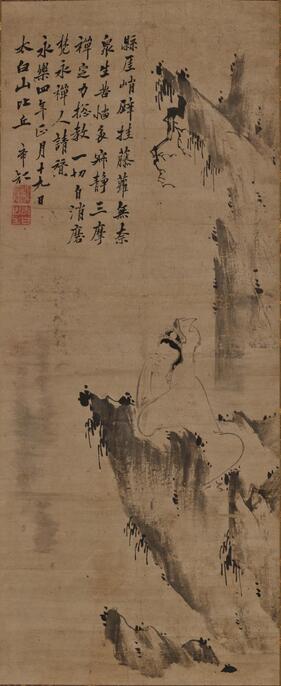 懸厓峭壁挂藤蘿無奈
眾生苦惱多寂靜三摩
禪定力拯救一切自消磨
梵永禪人請贊
永樂四年正月十九日
太白山比丘